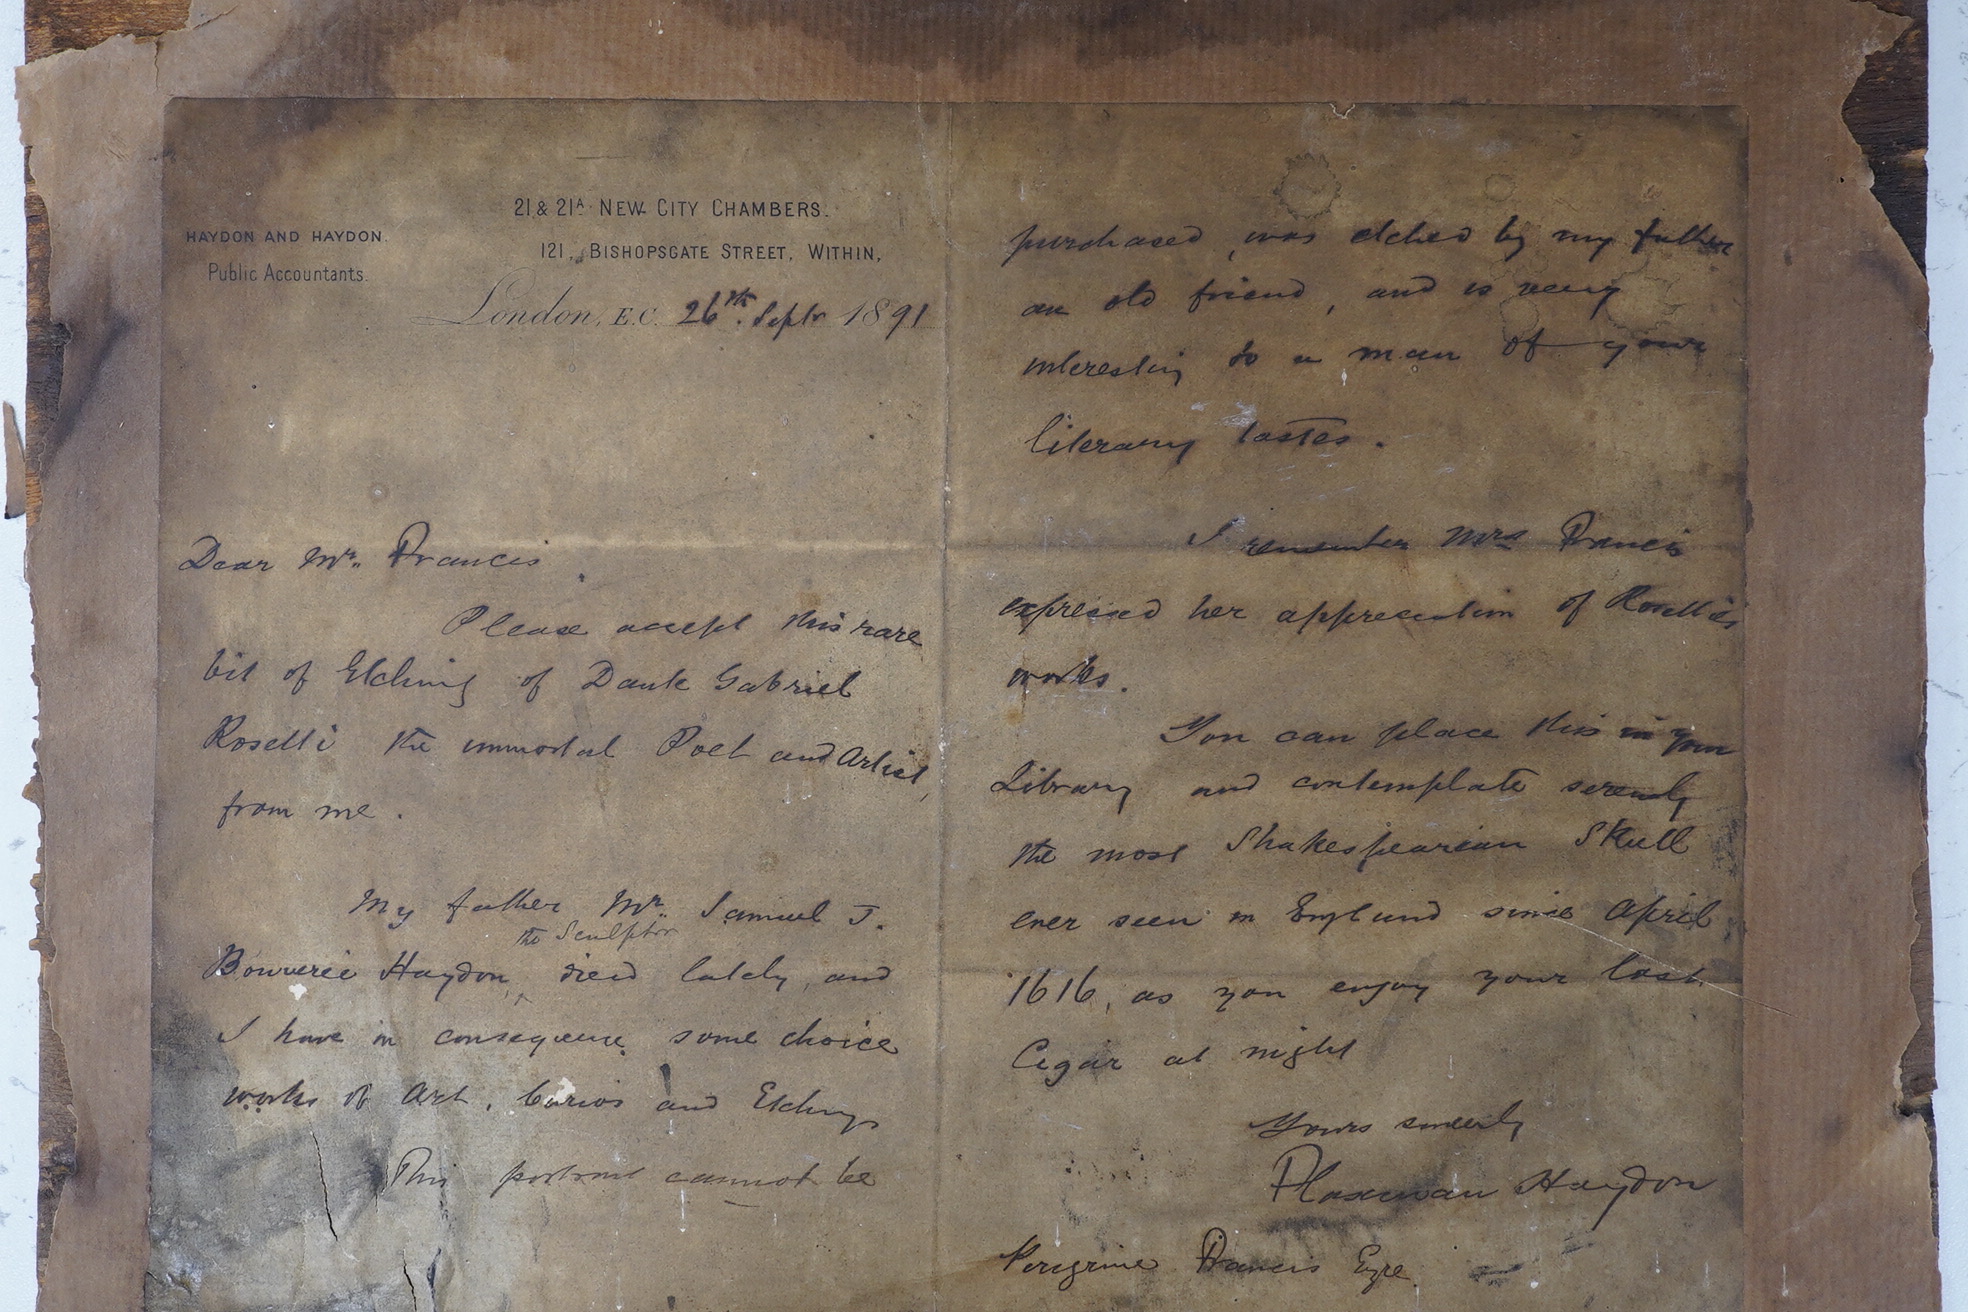 HAYDON AND HAYDON.
Public Accountants.
21 & 21A NEW CITY CHAMBERS.
121, BISHOPSGATE STREET, WITHIN,
London, E.C. 26th Septr 1891
Dear Mr. Francis
Please accept this rare
bit of Etching of Dante Gabriel
Rosetti the immortal Poet and Artist,
from me.
My father Mr. Samuel J.
the Sculptor
Bouverie Haydon, died lately, and
I have in consequence some choice
works of Art, Curios and Etchings
This portrait cannot be
purchased, was etched by my father
an old friend, and is very
interesting to a man of your
literary tastes.
I remember Mrs Francis
expressed her appreciation of Rosetti's
works.
You can place this in your
Library and contemplate serenely
the most Shakespearian Skull
ever seen in England since April
1616, as you enjoy your last
Cigar at night
Yours sincerely
Flaxman Haydon
Peregrine Francis Eyre